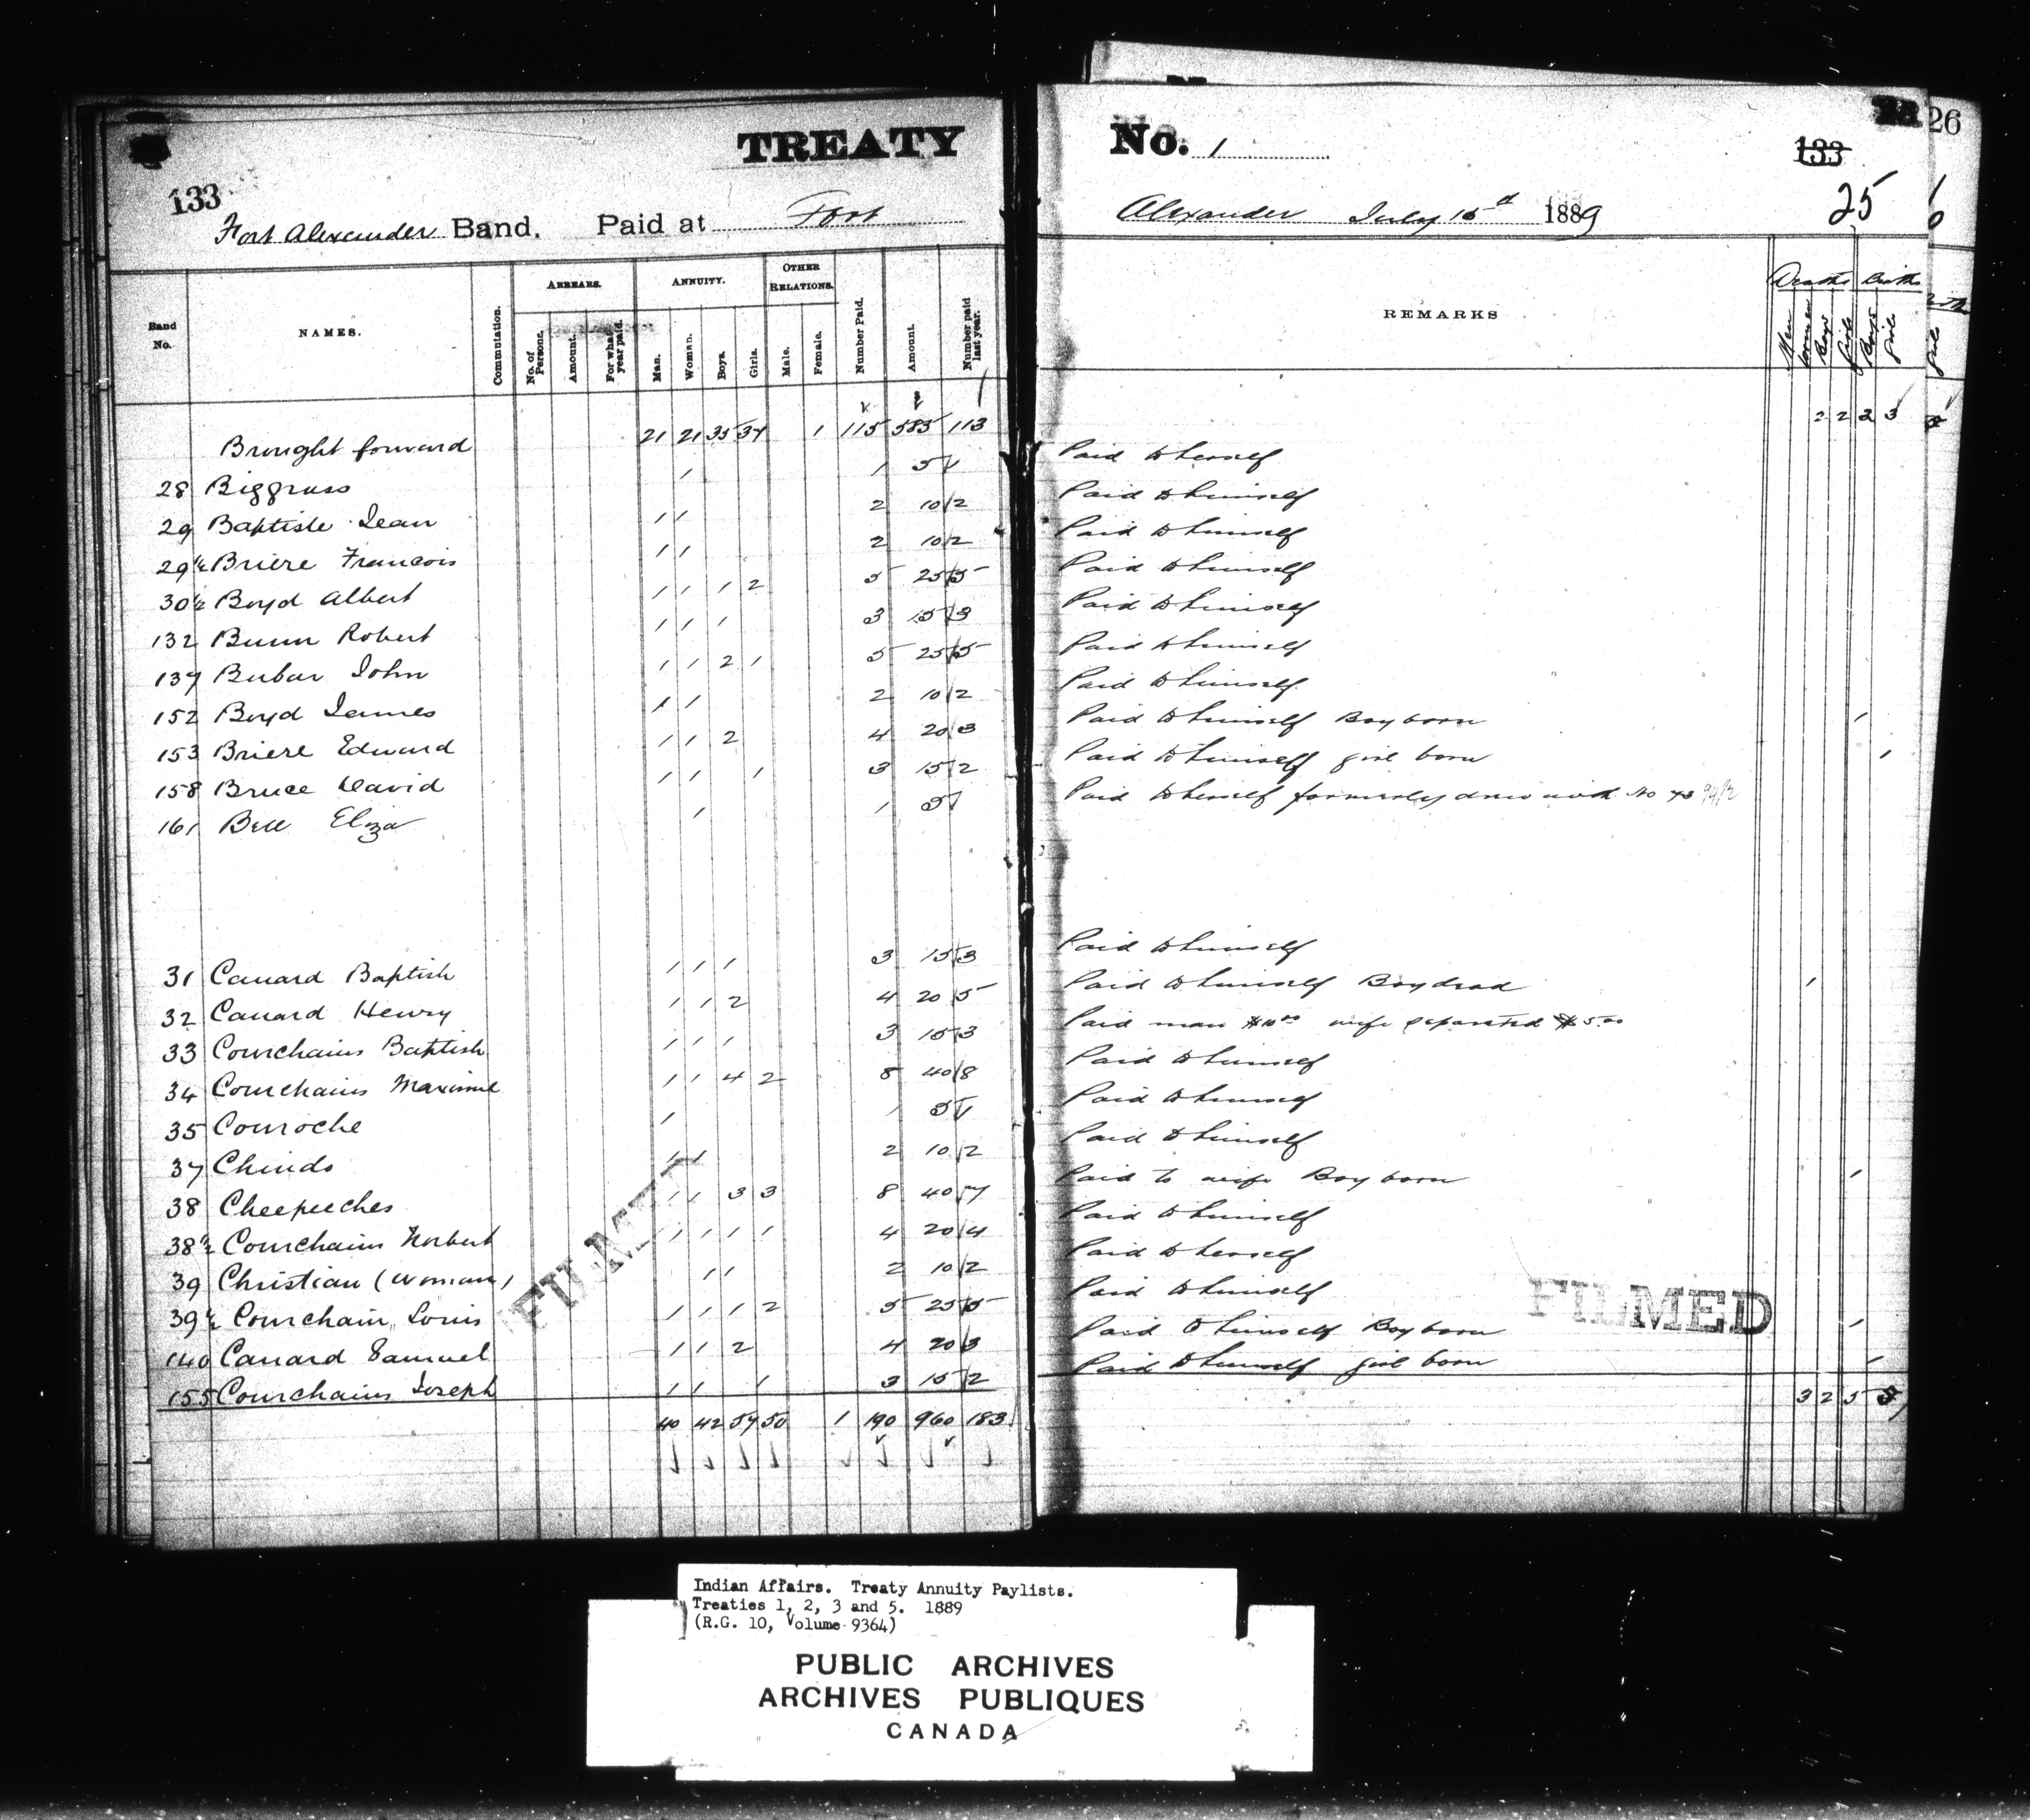 TREATY No. 1
133
133
26
25
Fort Alexander Band. Paid at Fort Alexander July 16th 1889
Band No. NAMES. Commutation. ARREARS. No. of Persons. Amount. For what year paid. ANNUITY. Man. Woman. Boys. Girls. OTHER RELATIONS. Male. Female. Number Paid. Amount. Number paid last year. REMARKS Deaths Men Women Boys Girls Births Boys Girls
Brought forward 21 21 35 37 1 115 585 113 2 2 2 3
28 Biggrass 1 1 5 1 Paid to herself
29 Baptiste Jean 1 1 2 10 2 Paid to himself
29½ Brière Francois 1 1 2 10 2 Paid to himself
30½ Boyd Albert 1 1 1 2 5 25 5 Paid to himself
132 Bunn Robert 1 1 1 3 15 3 Paid to himself
137 Bubar John 1 1 2 1 5 25 5 Paid to himself
152 Boyd James 1 1 2 10 2 Paid to himself
153 Briere Edward 1 1 2 4 20 3 Paid to himself Boy born 1
158 Bruce David 1 1 1 3 15 2 Paid to himself girl born 1
161 Bell Eliza 1 1 5 1 Paid to herself formerly drew with No 43
31 Canard Baptish 1 1 1 3 15 3 Paid to himself
32 Canard Henry 1 1 2 4 20 5 Paid to himself Boy dead 1
33 Courchains Baptish 1 1 1 3 15 3 Paid man $10.00 wife separated $5.00
34 Courchains Maxime 1 1 4 2 8 40 8 Paid to himself
35 Couroche 1 1 5 1 Paid to himself
37 Chinds 1 1 2 10 2 Paid to himself
38 Cheepeeches 1 1 3 3 8 40 7 Paid to wife Boy born 1
38½ Courchains Norbert 1 1 1 1 4 20 4 Paid to himself
39 Christian (woman) 1 1 2 10 2 Paid to herself
39½ Courchain Louis 1 1 1 2 5 25 5 Paid to himself
140 Canard Samuel 1 1 2 4 20 3 Paid to himself Boy born 1
155 Courchains Joseph 1 1 1 3 15 2 Paid to himself girl born 1
40 42 57 50 1 190 960 183 3 2 5
FILMED
FILMED
Indian Affairs. Treaty Annuity Paylists.
Treaties 1, 2, 3 and 5. 1889
(R.G. 10, Volume 9364)
PUBLIC ARCHIVES
ARCHIVES PUBLIQUES
CANADA